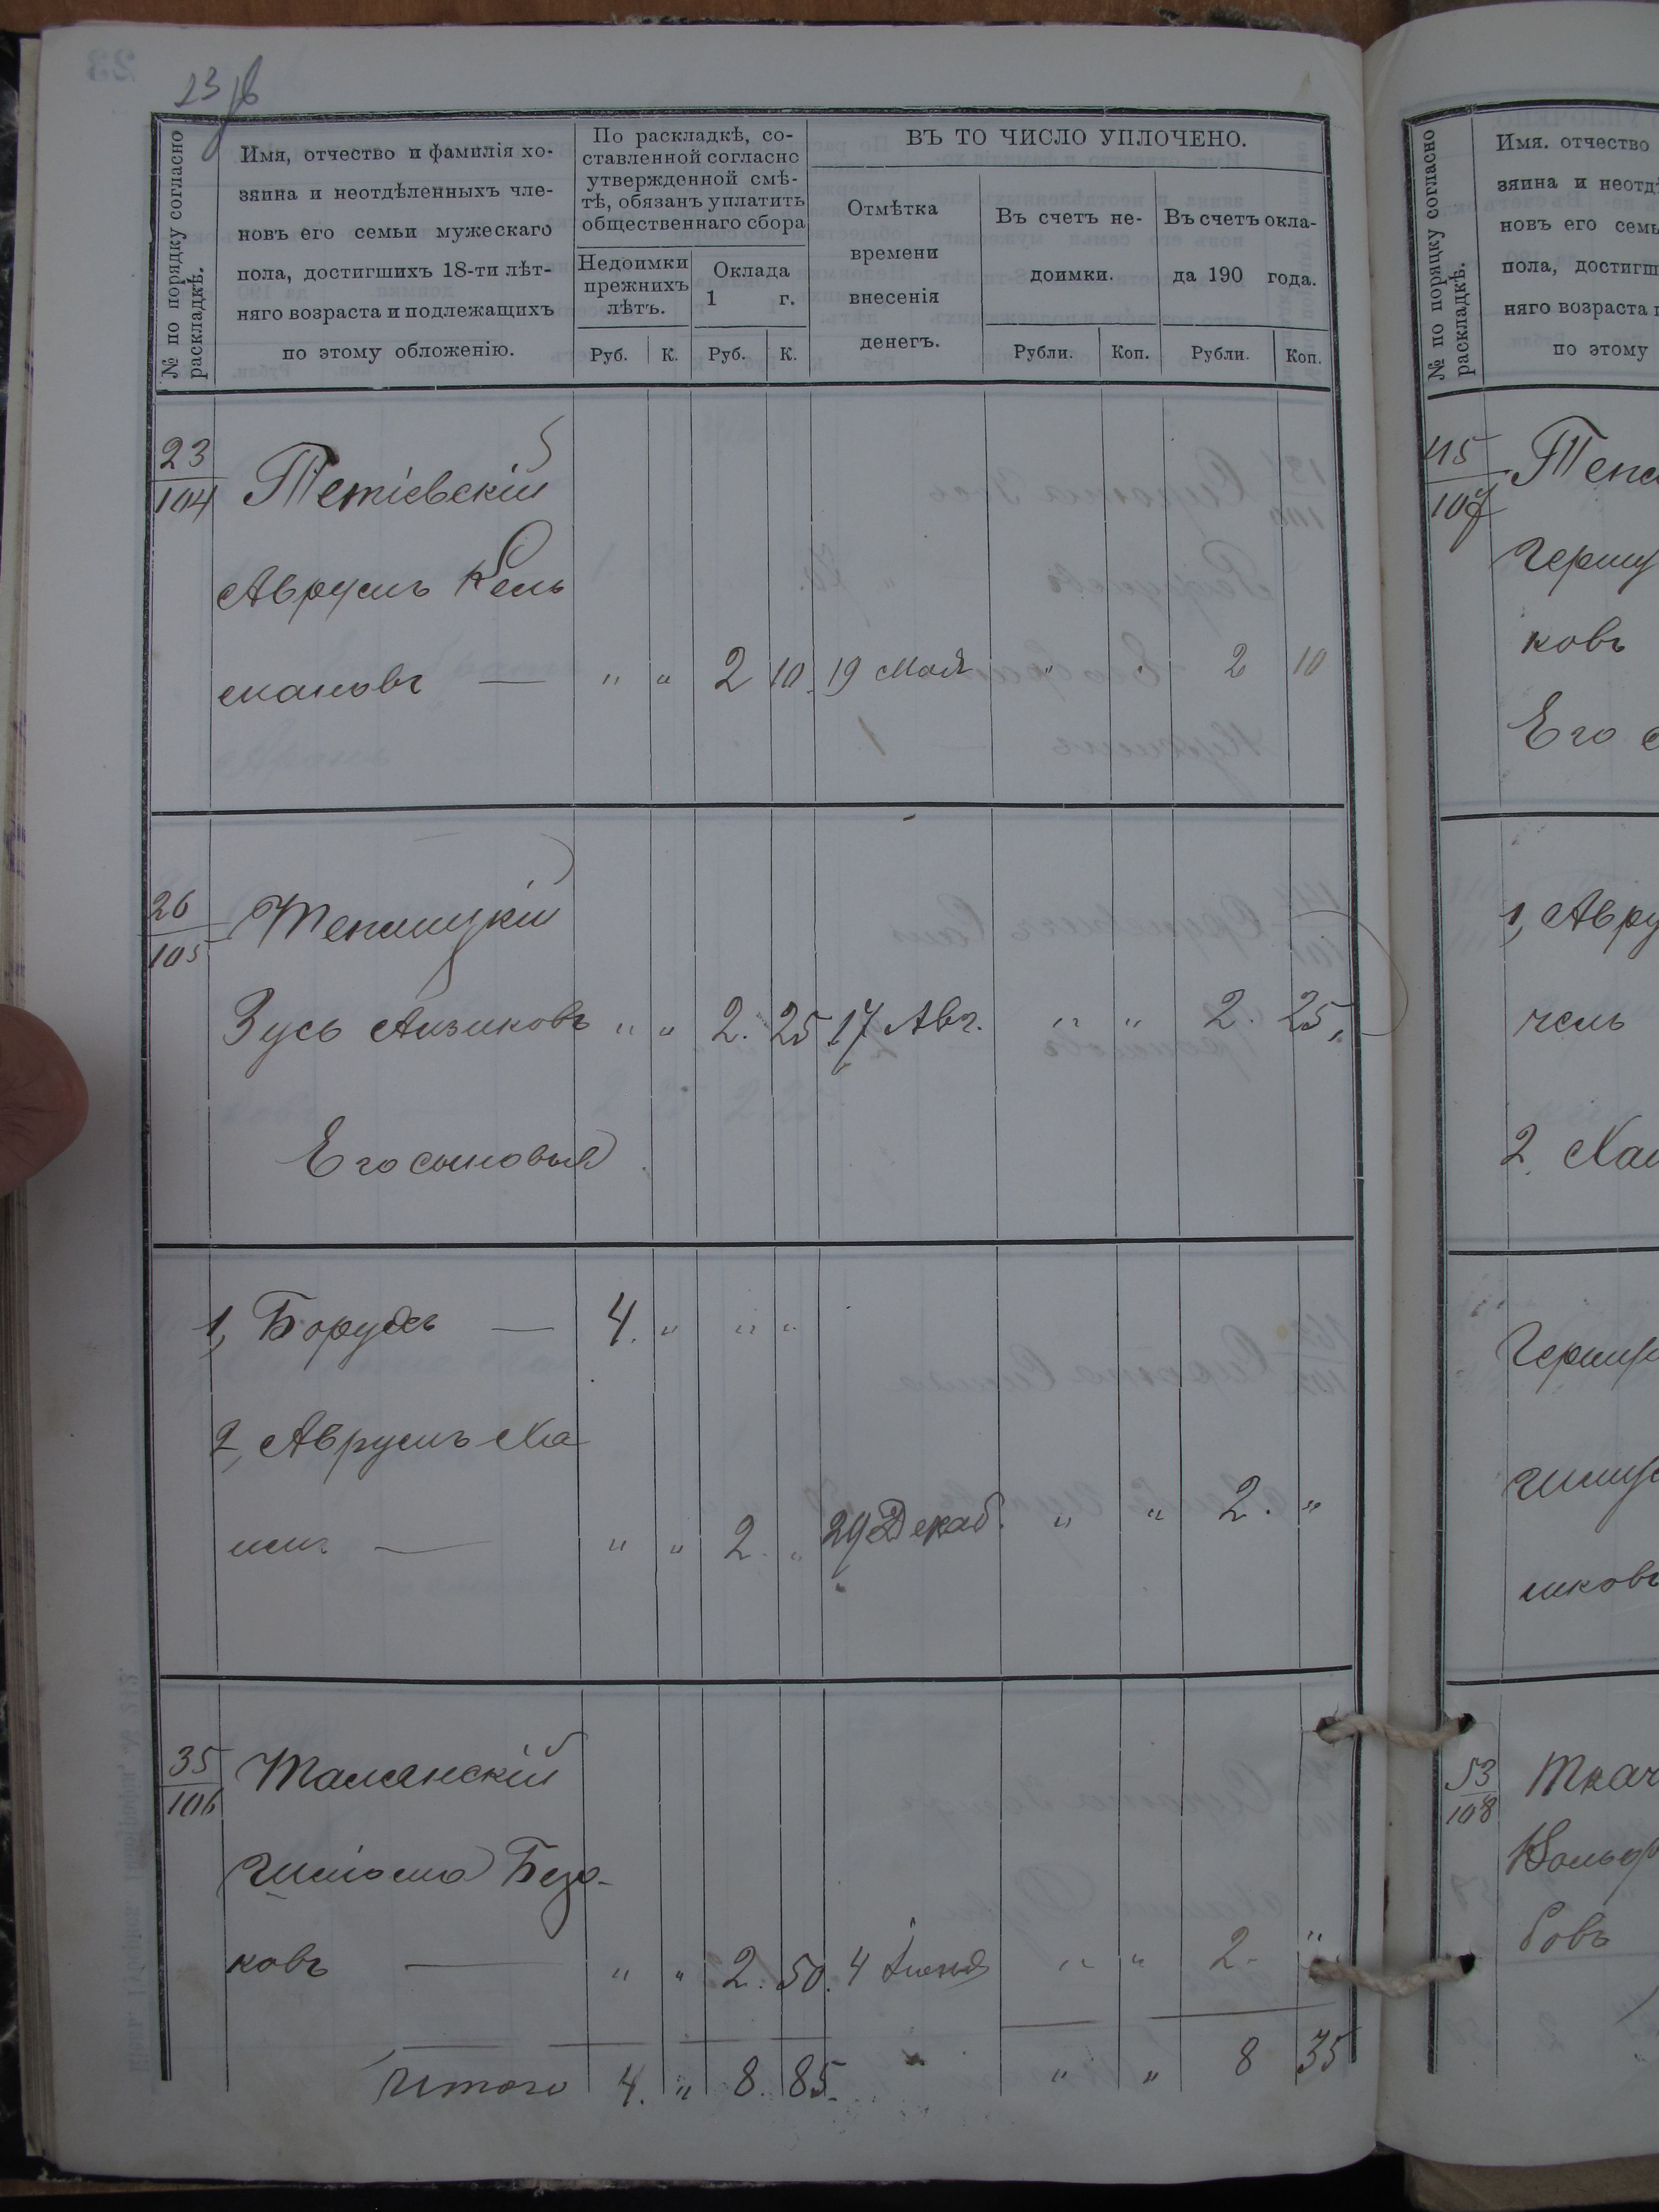 23 об
№ по порядку согласно
раскладкѣ.
Имя, отчество и фамилія хо-
зяина и неотдѣленныхъ чле-
новъ его семьи мужескаго
пола, достигшихъ 18-ти лѣт-
няго возраста и подлежащихъ
по этому обложенію.
По раскладкѣ, со-
ставленной согласно
утвержденной смѣ-
тѣ, обязанъ уплатить
общественнаго сбора
Недоимки
прежнихъ
лѣтъ.
Оклада
1 г.
Руб. К. Руб. К.
ВЪ ТО ЧИСЛО УПЛОЧЕНО.
Отмѣтка
времени
внесенія
денегъ.
Въ счетъ не-
доимки.
Рубли. Коп.
Въ счетъ окла-
да 190 года.
Рубли. Коп.
23
104 Тетіевскій
Аврумъ Кель
мановъ — " " 2 10. 19 Мая " 2 10
26
105
Зусь Аизиковъ " " 2. 25 17 Авг. " " 2. 25
Его сыновья
1, Борухъ — 4. " " "
2, Аврумъ Ха
имъ — " " 2. " 29 Декаб. " " 2. "
35
106 Талянскій
ковъ — " " 2. 50. 4 Іюня " " 2 - "
Итого 4. " 8. 85. " " 8 35
№ по порядку согласно
раскладкѣ.
Имя. отчество
зяина и неотдѣ
новъ его семь
пола, достигш
няго возраста
по этому
45
107
ковъ
Его
1, Авру
2. Хаи
53
108 Ткач
бовъ